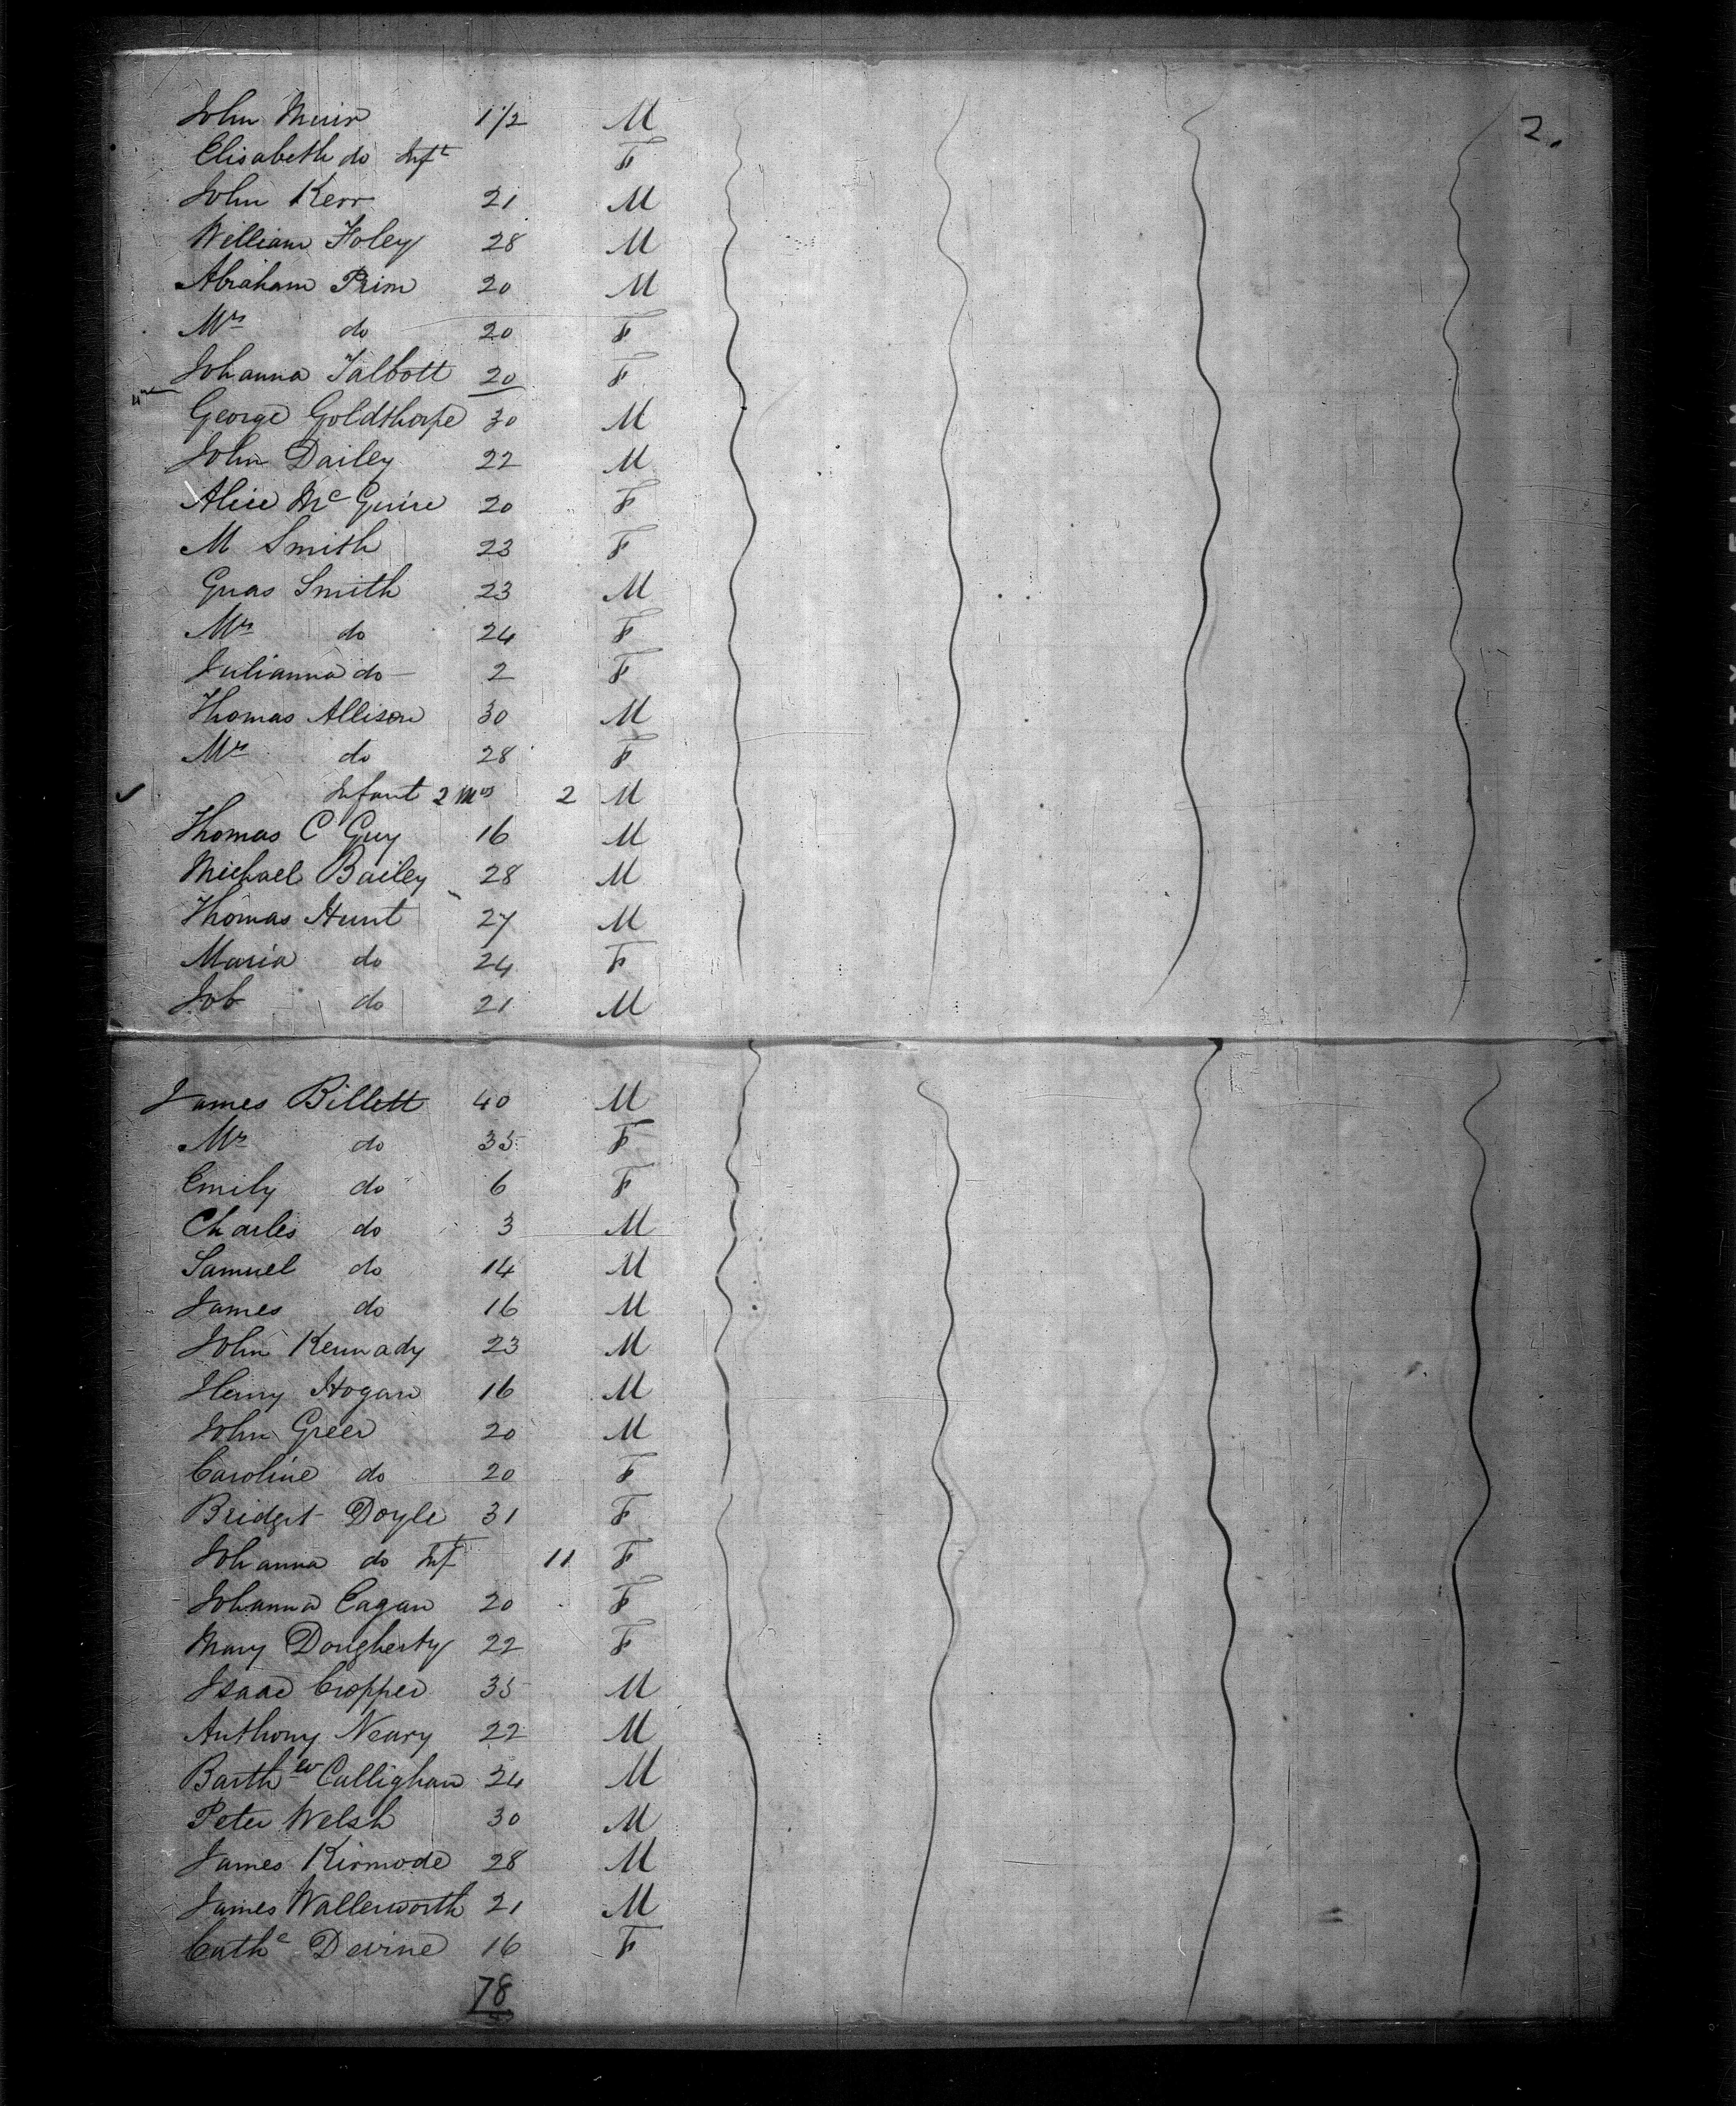 2.
John Muir 1 1/2 M
Elisabeth do Inft F
John Kerr 21 M
William Foley 28 M
Abraham Prim 20 M
Mrs do 20 F
Johanna Talbott 20 F
George Goldthorpe 30 M
John Dailey 22 M
Alice McGuire 20 F
M Smith 23 F
Smith 23 M
Mrs do 24 F
Julianna do 2 F
Thomas Allison 30 M
Mrs do 28 F
Infant 2 mos 2 M
Thomas C Guy 16 M
Michael Bailey 28 M
Thomas Hunt 27 M
Maria do 24 F
Job do 21 M
James Billett 40 M
Mrs do 35 F
Emily do 6 F
Charles do 3 M
Samuel do 14 M
James do 16 M
John Kennady 23 M
Henry Hogan 16 M
John Greer 20 M
Caroline do 20 F
Bridget Doyle 31 F
Johanna do Inft 11 F
Johanna Eagan 20 F
Mary Dougherty 22 F
Isaac Cropper 35 M
Anthony Neary 22 M
Barthew Callighan 24 M
Peter Welsh 30 M
James Kirmode 28 M
James Wallerworth 21 M
Cathe Devine 16 F
78